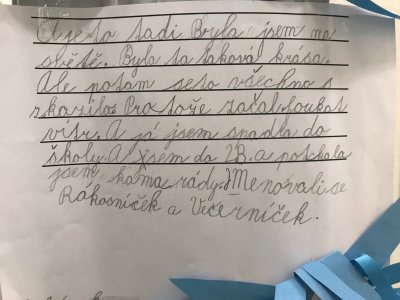 A je to tadi Byla jsem na
světě. Byla to taková krása.
Ale potom se to všechno s
zkazilo Protože začal foukat
vítr. A já jsem spadla do
školy. A jsem do 2B. a potkala
jsem kámarády. Jmenovali se
Rákosníček a Večerníček.